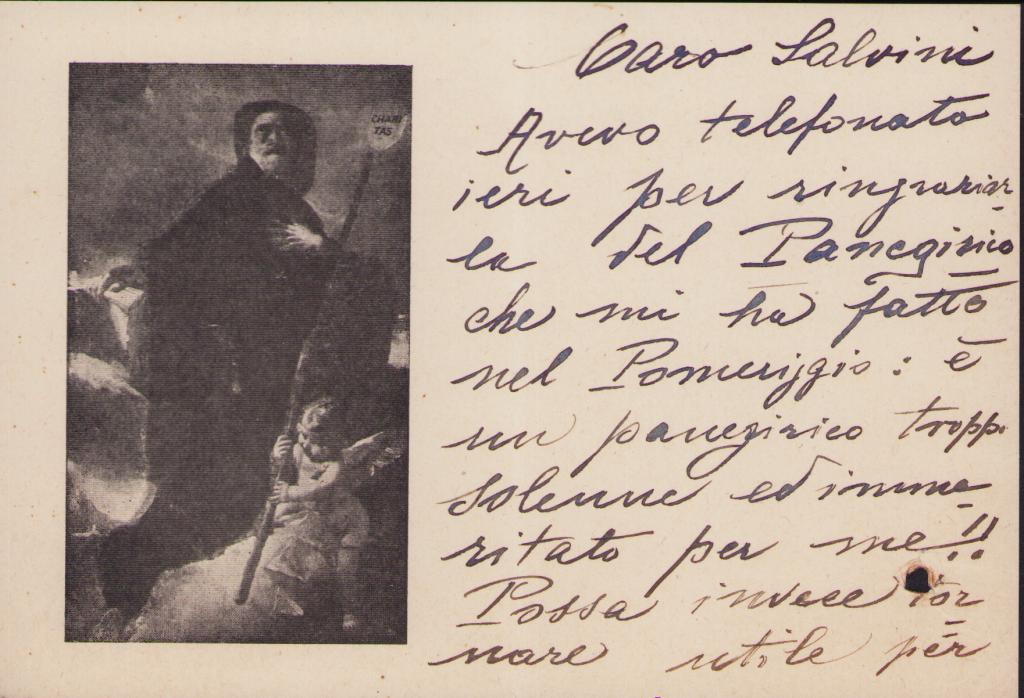 CHARI
TAS
Caro Salvini
Avevo telefonato
ieri per ringraziar-
la del Panegirico
che mi ha fatto
nel Pomeriggio : è
un panegirico troppo
solenne ed imme-
ritato per me!!
Possa invece tor
nare utile per